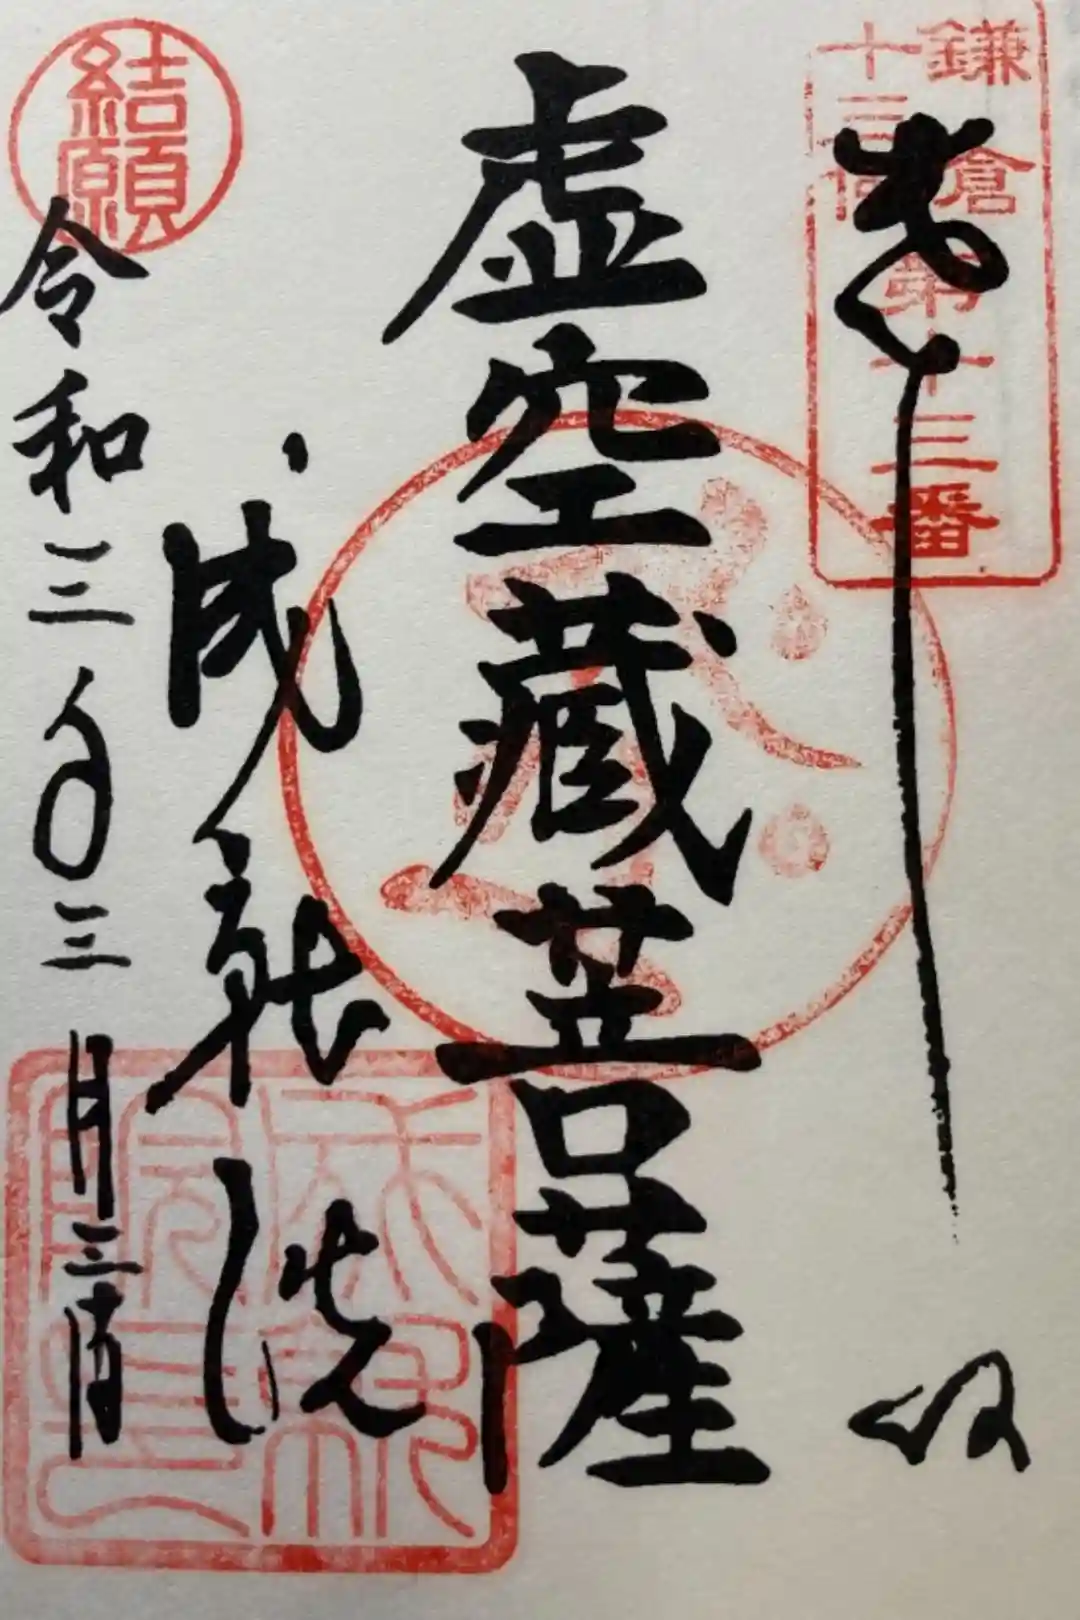 鎌倉
十三佛
第十三番
奉拝
虚空蔵菩薩
成就院
結願
令和三年三月三日